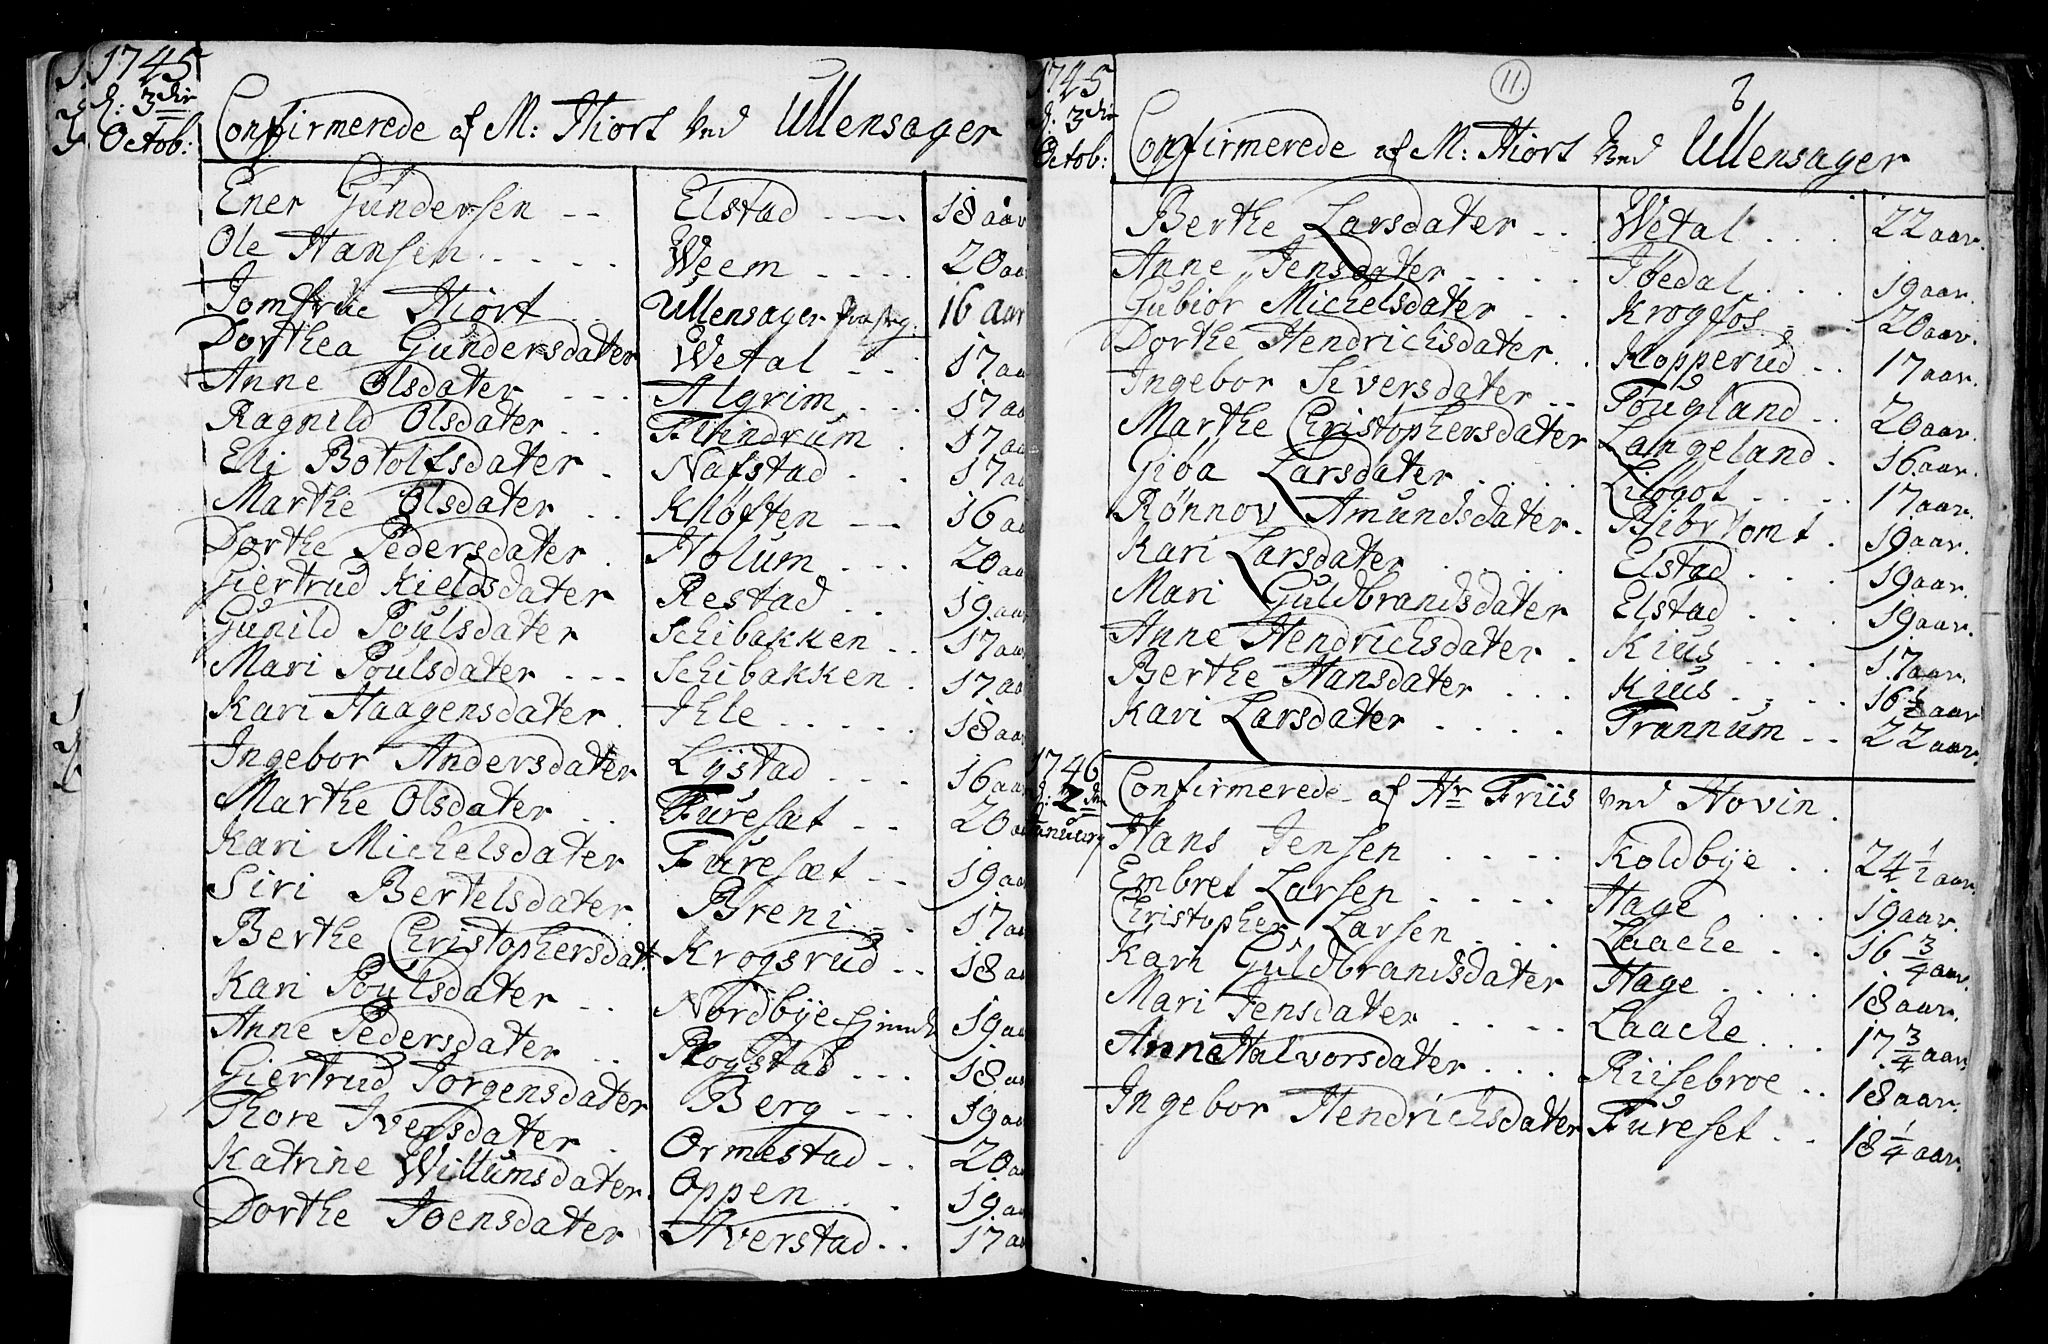 1745
d: 3die
Octob:
Confirmerede af M: Hiort ved Ullensager
Ener Gundersen -- Elstad ---- 18 aar
Ole Hansen ..... Weem .... 20 aa
Jomfrue Hiort .. Ullensager Præsteg: 16 aar
Dorthea Gundersdater Wetal -- 17 aa
Anne Olsdater --- Algrim ... 17 aa
Ragnild Olsdater .. Flindrum . 17 aa
Eli Botolfsdater . Nafstad .. 17 aa
Marthe Olsdater .. Kløften -- 16 aa
Dorthe Pedersdater . Holum ... 20 aa
Giertrud Kieldsdater Restad .. 19 aa
Gunild Poulsdater Schibakken .. 17 aar
Mari Poulsdater --- Schibakken . 17 aa
Kari Haagensdater . Ihle .... 18 aa
Ingebor Andersdater Lystad ... 16 aar
Marthe Olsdater .. Furesæt -- 20 aa
Kari Michelsdater Furesæt -- 19 aa
Siri Bertelsdater . Breni .. 17 aa
Berthe Christophersdat: Krogsrud .. 18 aa
Kari Poulsdater .. Nordbye 19 aa
Anne Pedersdater .. Rogstad ... 18 aa
Giertrud Jorgensdater Berg --- 19 aa
Thore Iversdater . Ormestad .. 20 aa
Katrine Willumsdater . Oppen .. 19 aa
Dorthe Joensdater Averstad .. 17 aa
11.
1745
d. 3die
Octob:
Confirmerede af M: Hiort ved Ullensager
Berthe Larsdater .. Wetal ... 22 aar.
Anne Jensdater .... Ibedal ... 19 aar.
Gubior Michelsdater .. Krogfos . 20 aar.
Dorthe Hendrichsdater .. Kopperud .. 17 aar.
Ingebor Siversdater .. Fougland .. 20 aar.
Marthe Christophersdater Langeland . 16 aar.
Giba Larsdater .... Lilogot .... 17 aar.
Rønnov Amundsdater. Bibrtomt . 19 aar.
Kari Larsdater .... Elstad ... 19 aar.
Mari Guldbrandsdater Elstad ... 19 aar.
Anne Hendrichsdater . Kius ... 17 aar.
Berthe Hansdater ... Kius .... 16 1/2 aar
Kari Larsdater .... Trannum .. 22 aar.
1746
d: 2den
Januarj
Confirmerede af Hr Friis ved Hovin.
Hans Jensen .... Koldbye .. 24 1/2 aar.
Embret Larsen .... Hage ... 19 aar.
Christopher Larsen ... Laache .. 16 3/4 aar.
Kari Guldbrandsdater Hage .... 18 aar.
Mari Jensdater .... Laache ... 17 3/4 aar.
Anne Halvorsdater ... Riisebroe .. 18 aar.
Ingebor Hendrichsdater Fureset .. 18 1/4 aar.